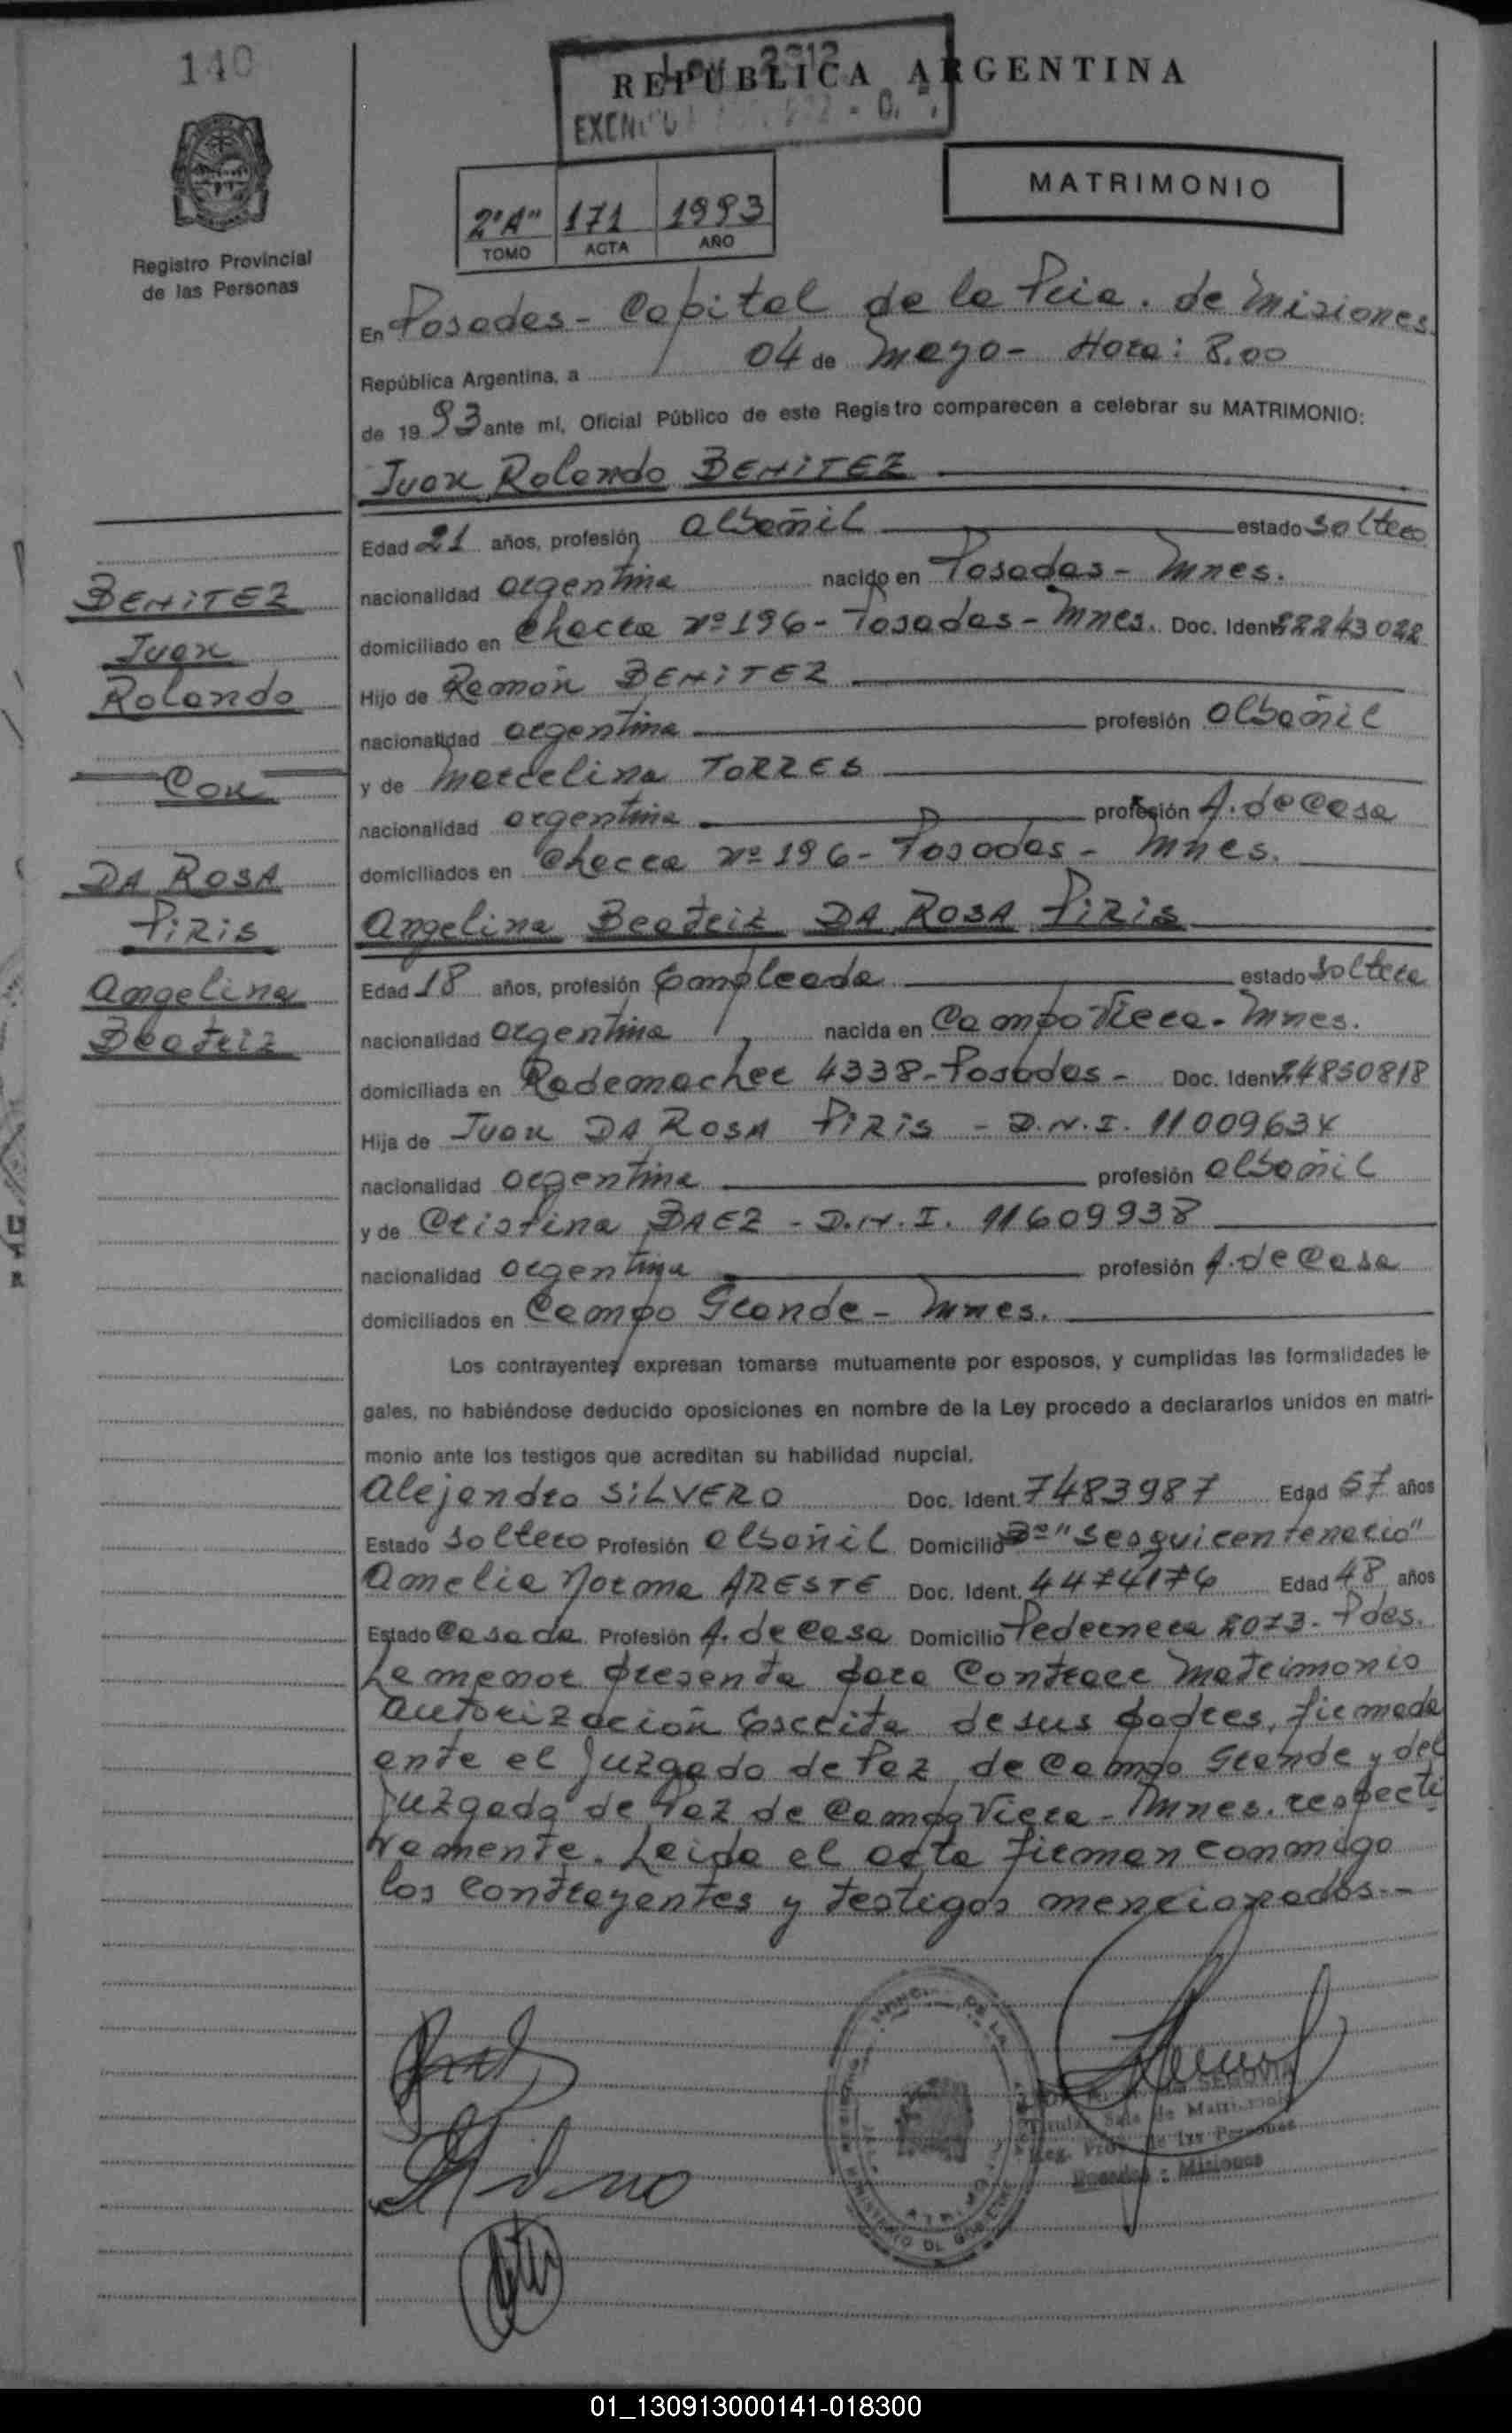 140
Registro Provincial
de las Personas
Ley 2313
REPUBLICA ARGENTINA
MATRIMONIO
2º"A" 171 1993
TOMO ACTA AÑO
En Posadas - Capital de la Pcia. de Misiones
República Argentina, a 04 de Mayo - Hora: 8,00
de 1993 ante mí, Oficial Público de este Registro comparecen a celebrar su MATRIMONIO:
Juan Rolando BENITEZ
Edad 21 años, profesión albañil estado soltero
nacionalidad argentina nacido en Posadas - Mnes.
domiciliado en Chacra nº 196 - Posadas - Mnes. Doc. Ident. 22243022
Hijo de Ramón BENITEZ
nacionalidad argentina profesión albañil
y de Marcelina TORRES
nacionalidad argentina profesión A. de Casa
domiciliados en Chacra nº 196 - Posadas - Mnes.
BENITEZ
Juan
Rolando
Con
DA ROSA
PIRIS
Angelina
Beatriz
Angelina Beatriz DA ROSA PIRIS
Edad 18 años, profesión Empleada estado soltera
nacionalidad argentina nacida en Campo Viera - Mnes.
domiciliada en Rademacher 4338 - Posadas - Doc. Ident. 24850818
Hija de Juan DA ROSA PIRIS - D.N.I. 11009634
nacionalidad argentina profesión albañil
y de Cristina BAEZ - D.N.I. 11609938
nacionalidad argentina profesión A. de Casa
domiciliados en Campo Grande - Mnes.
Los contrayentes expresan tomarse mutuamente por esposos, y cumplidas las formalidades le
gales, no habiéndose deducido oposiciones en nombre de la Ley procedo a declararlos unidos en matri-
monio ante los testigos que acreditan su habilidad nupcial.
Alejandro SILVERO Doc. Ident. 7483987 Edad 57 años
Estado soltero Profesión albañil Domicilio Bº "Sesquicentenario"
Amelia Norma ARESTE Doc. Ident. 4474176 Edad 48 años
Estado Casada Profesión A. de Casa Domicilio Pedernera 2073 - Pdas.
La menor presenta para Contraer Matrimonio
autorización Escrita de sus padres, firmada
ante el Juzgado de Paz de Campo Grande y del
Juzgado de Paz de Campo Viera - Mnes. respecti
vamente. Leida el acta firman conmigo
los Contrayentes y testigos mencionados.-
SEGOVIA
Titular Sala de Matrimonio
Reg. Prov. de las Personas
Posadas : Misiones
MINISTERIO DE GOBIERNO
01_130913000141-018300